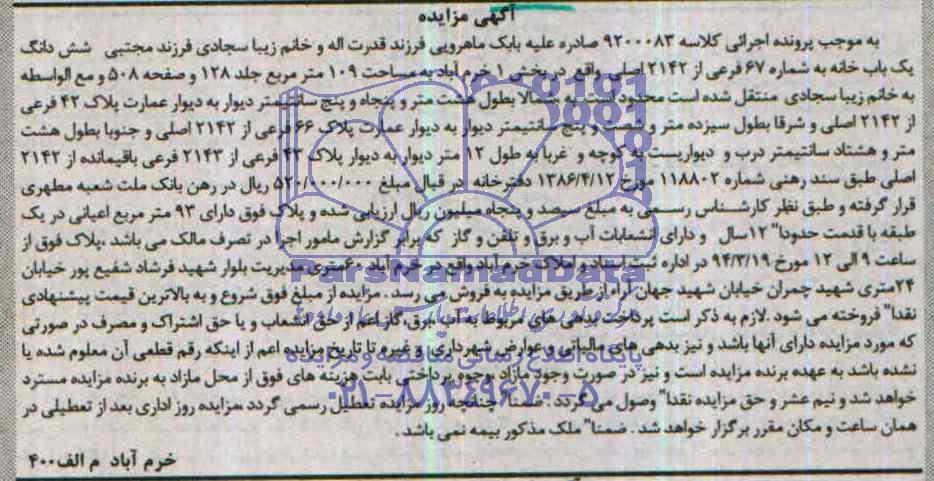 آگهی مزایده
به موجب پرونده اجرائی کلاسه ۹۲۰۰۰۸۳ صادره علیه بابک ماهرویی فرزند قدرت اله و خانم زیبا سجادی فرزند مجتبی شش دانگ
یک باب خانه به شماره ۶۷ فرعی از ۲۱۴۲ اصلی واقع در بخش ۱ خرم آباد به مساحت ۱۰۹ متر مربع جلد ۱۲۸ و صفحه ۵۰۸ و مع الواسطه
به خانم زیبا سجادی منتقل شده است محدود است به شمالا بطول هشت متر و پنجاه و پنج سانتیمتر دیوار به دیوار عمارت پلاک ۴۲ فرعی
از ۲۱۴۲ اصلی و شرقا بطول سیزده متر و شصت و پنج سانتیمتر دیوار به دیوار عمارت پلاک ۶۶ فرعی از ۲۱۴۲ اصلی و جنوبا بطول هشت
متر و هشتاد سانتیمتر درب و دیواریست به کوچه و غربا به طول ۱۲ متر دیوار به دیوار پلاک ۴۳ فرعی از ۲۱۴۳ فرعی باقیمانده از ۲۱۴۲
اصلی طبق سند رهنی شماره ۱۱۸۸۰۲ مورخ ۱۳۸۶/۴/۱۲ دفترخانه در قبال مبلغ ۵۲۰/۰۰۰/۰۰۰ ریال در رهن بانک ملت شعبه مطهری
قرار گرفته و طبق نظر کارشناس رسمی به مبلغ سیصد و پنجاه میلیون ریال ارزیابی شده و پلاک فوق دارای ۹۳ متر مربع اعیانی در یک
طبقه با قدمت حدودا" ۱۲سال و دارای انشعابات آب و برق و تلفن و گاز که برابر گزارش مامور اجرا در تصرف مالک می باشد ،پلاک فوق از
ساعت ۹ الی ۱۲ مورخ ۹۴/۳/۱۹ در اداره ثبت اسناد و املاک خرم آباد واقع در خرم آباد ۶۰متری مدیریت بلوار شهید فرشاد شفیع پور خیابان
۲۴متری شهید چمران خیابان شهید جهان آرا، از طریق مزایده به فروش می رسد . مزایده از مبلغ فوق شروع و به بالاترین قیمت پیشنهادی
نقدا" فروخته می شود .لازم به ذکر است پرداخت بدهی های مربوط به آب ،برق،گاز اعم از حق انشعاب و یا حق اشتراک و مصرف در صورتی
که مورد مزایده دارای آنها باشد و نیز بدهی های مالیاتی و عوارض شهرداری و غیره تا تاریخ مزایده اعم از اینکه رقم قطعی آن معلوم شده یا
نشده باشد به عهده برنده مزایده است و نیز در صورت وجود مازاد وجوه پرداختی بابت هزینه های فوق از محل مازاد به برنده مزایده مسترد
خواهد شد و نیم عشر و حق مزایده نقدا" وصول می گردد .ضمنا" چنانچه روز مزایده تعطیل رسمی گردد ،مزایده روز اداری بعد از تعطیلی در
همان ساعت و مکان مقرر برگزار خواهد شد . ضمنا" ملک مذکور بیمه نمی باشد .
خرم آباد م الف۴۰۰
ParsNamadData
پایگاه اطلاع رسانی مناقصه و مزایده
۰۲۱-۸۸۳۴۹۶۷۰-۵